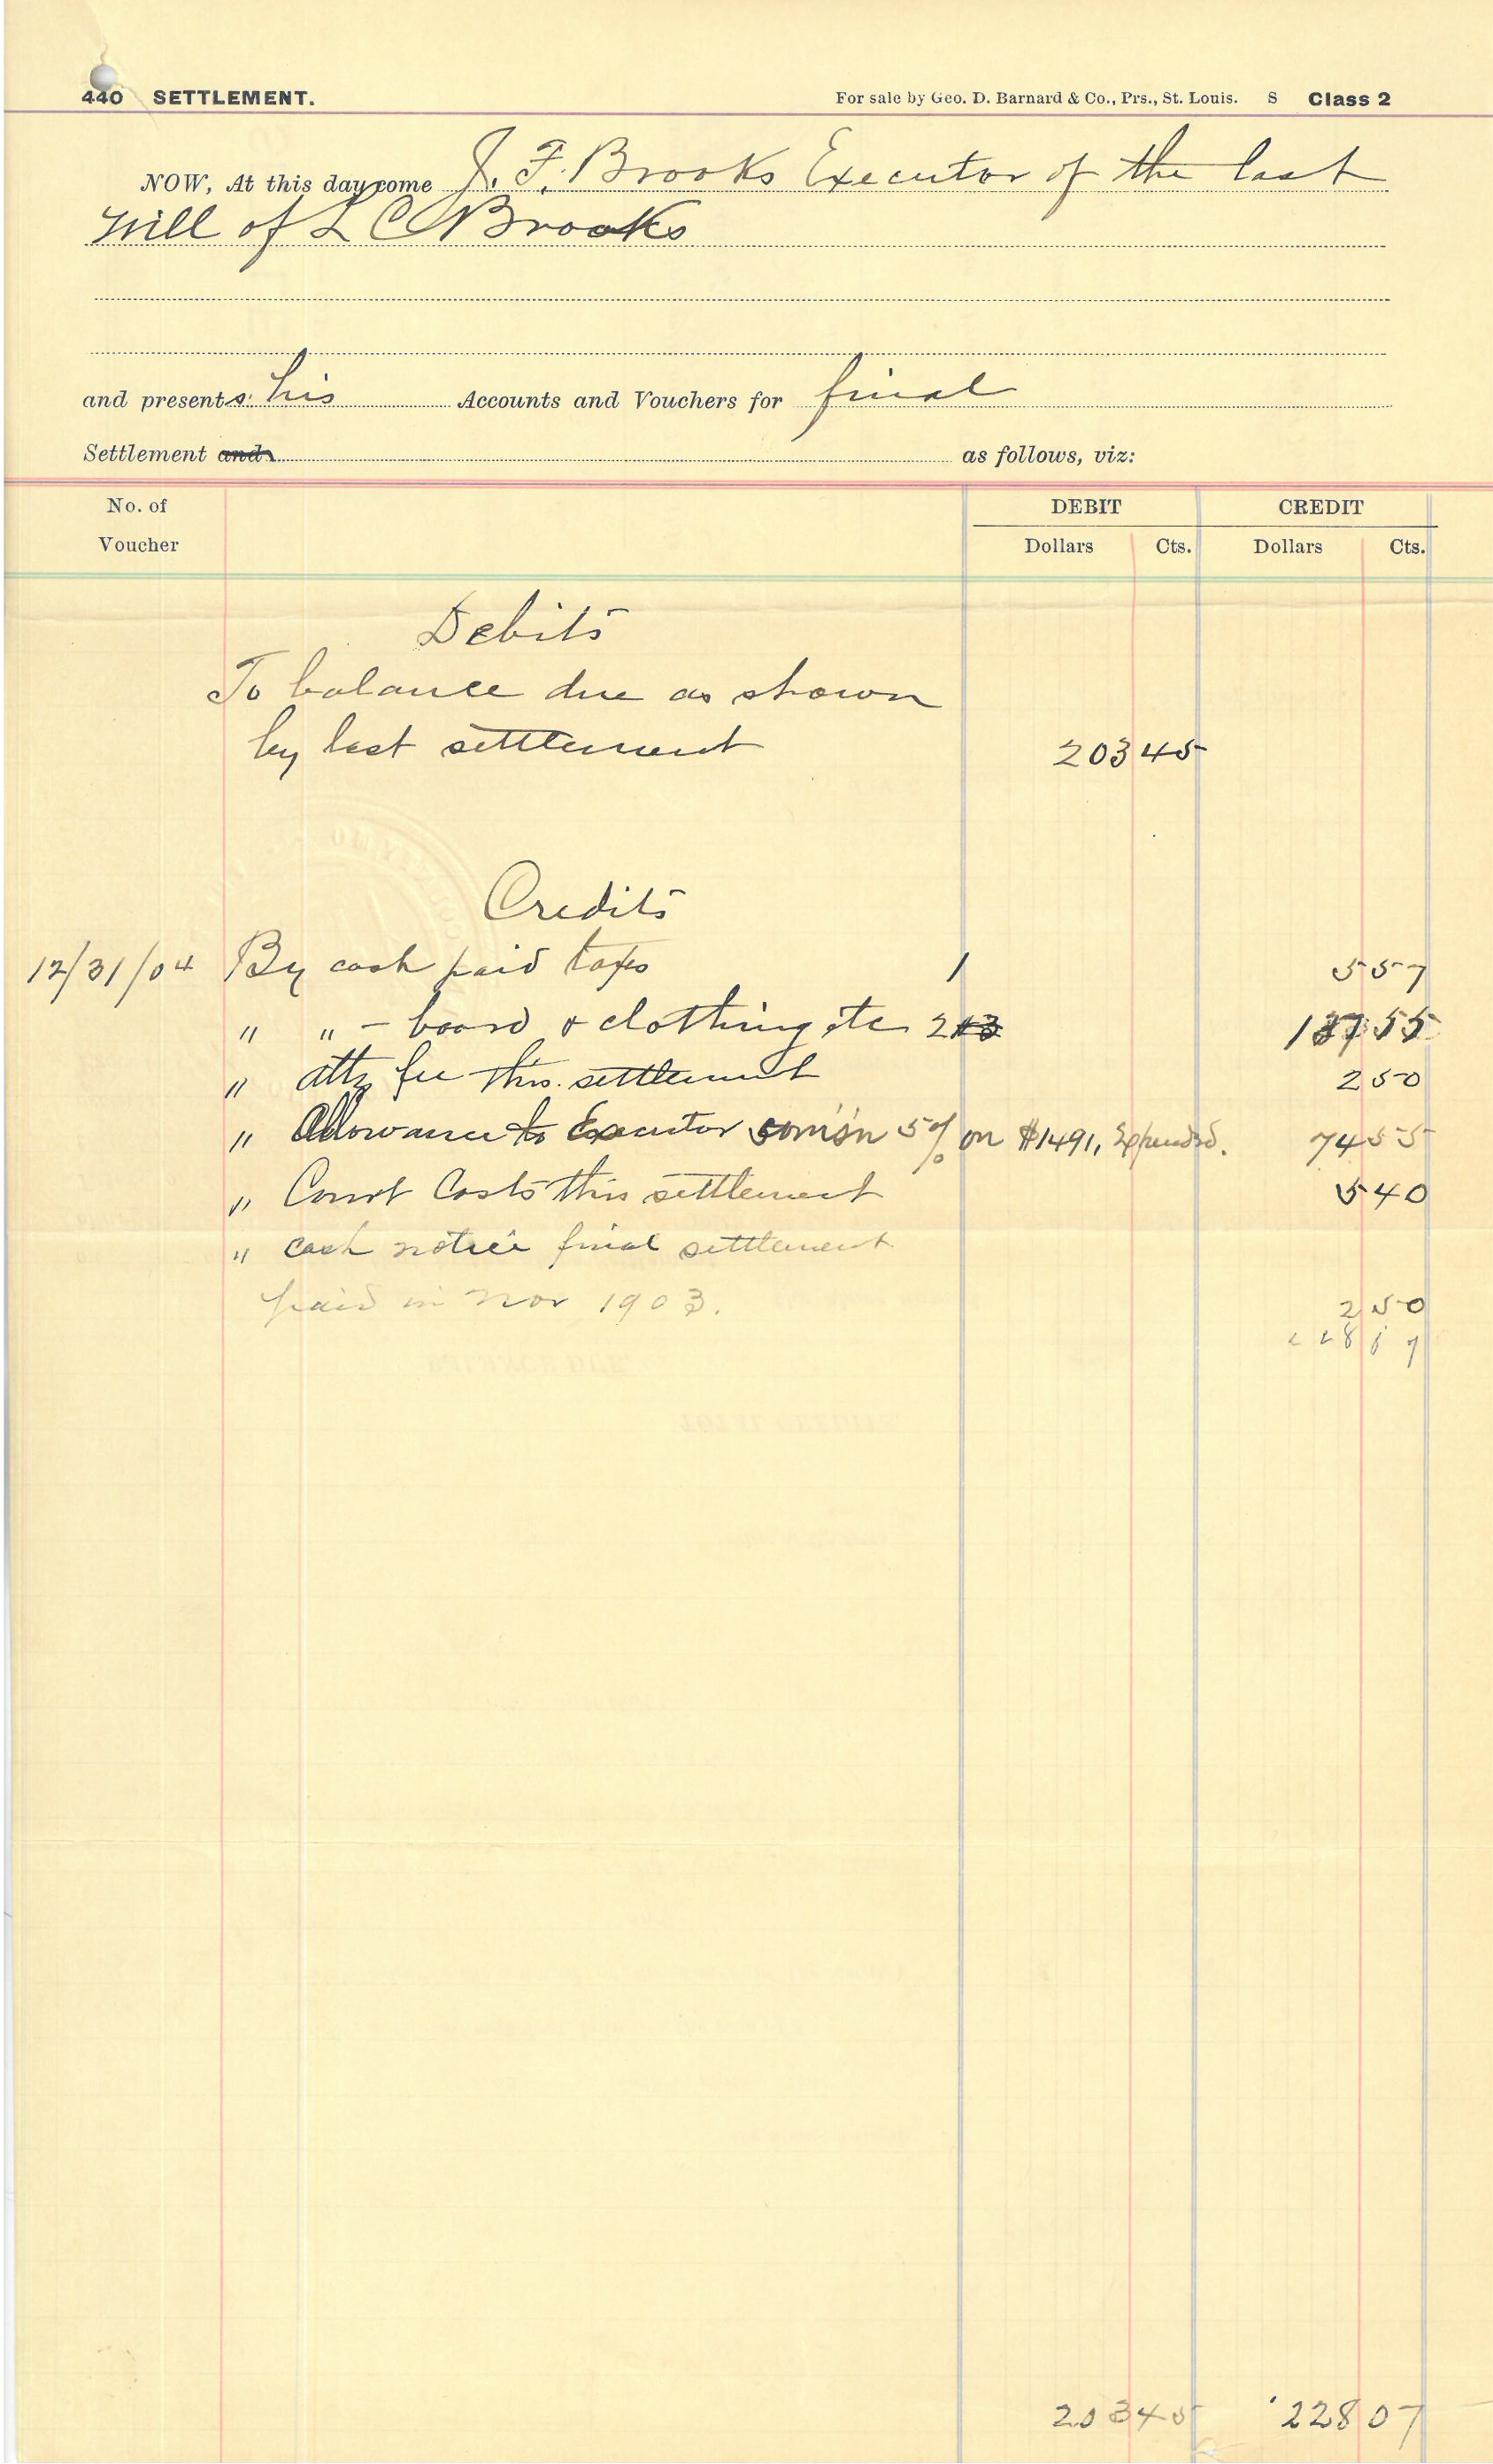 440 SETTLEMENT. For sale by Geo. D. Barnard & Co., Prs., St. Louis. S Class 2
NOW, At this day come J. F. Brooks Executor of the last
will of L C Brooks
and presents his Accounts and Vouchers for final
Settlement and as follows, viz:
No. of Voucher DEBIT CREDIT
Dollars Cts. Dollars Cts.
Debits
To balance due as shown
by last settlement 203 45
Credits
12/31/04 By cash paid taxes 1 5 57
" " - board & clothing etc 2 137 55
" atty fee this settlement 2 50
" Allowance to Executor com'sn 5% on $1491, Expended. 74 55
" Court Costs this settlement 5 40
" cash notice final settlement
paid in Nov 1903. 2 50
203 45 228 07